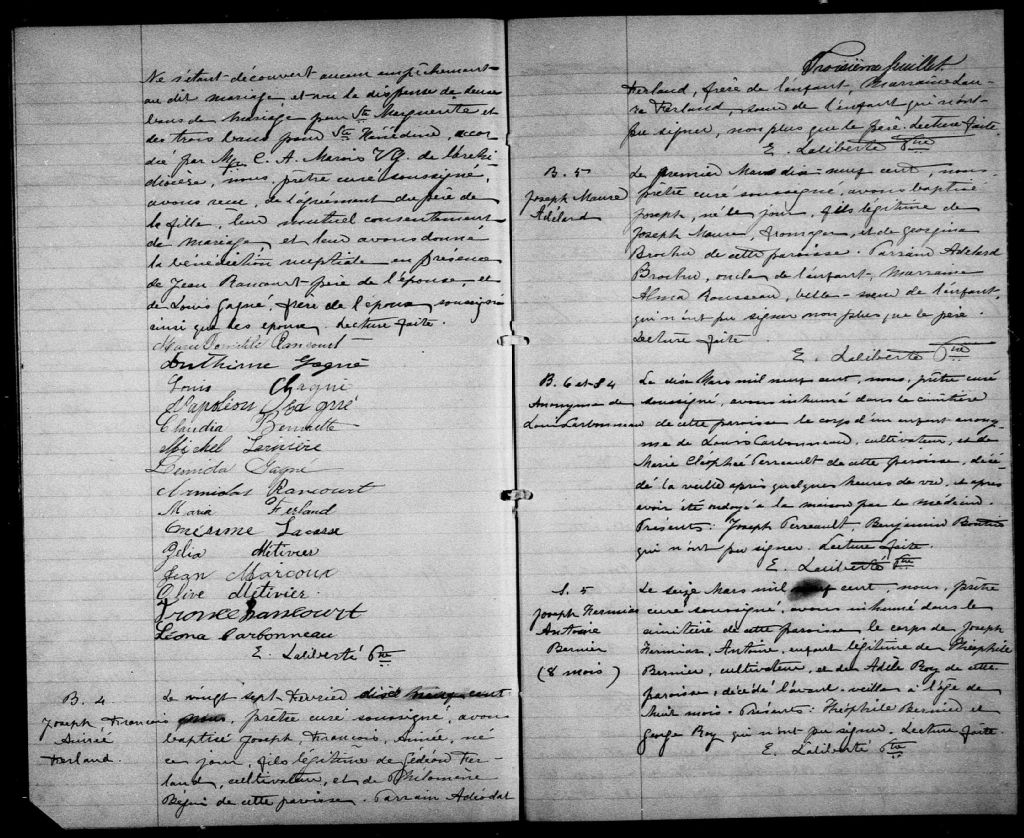 Ne s'étant découvert aucun empêchement
au dit mariage, et vu la dispense de deux
bans de mariage pour Ste Marguerite et
des trois bans pour Ste Hénédine, accor-
dée par Mgr C. A. Marois V.G. de l'archi-
diocèse, nous, prêtre curé soussigné,
avons reçu, de l'agrément du père de
la fille, leur mutuel consentement
de mariage, et leur avons donné
la bénédiction nuptiale en présence
de Jean Rancourt père de l'épouse, et
de Louis Gagné, frère de l'époux, soussignés
ainsi que les époux. Lecture faite.
Marie Rancourt
Onthime Gagné
Louis Gagné
Napoléon Gagné
Claudia
Michel Larivière
Gagné
Rancourt
Maria Ferland
Onésime Lacasse
Zélia Métivier
Jean Marcoux
Olive Métivier
Rancourt
Léona Carbonneau
E. Laliberté Ptre
B. 4.
Joseph François
Aimée
Ferland.
Le vingt sept Février dix neuf cent
nous, prêtre curé soussigné, avons
baptisé Joseph, François, Aimée, né
ce jour, fils légitime de Gédéon Fer-
land, cultivateur, et de Philomène
Bégin de cette paroisse. Parrain Adéodat
Troisième feuillet
Ferland, frère de l'enfant, Marraine Lau-
ra Ferland, soeur de l'enfant qui n'ont
pu signer, non plus que le père. Lecture faite.
E. Laliberté Ptre
B. 5
Joseph Maure
Adélard
Le premier Mars dix-neuf cent, nous
prêtre curé soussigné, avons baptisé
Joseph, né le jour, fils légitime de
Joseph Maure, fromager, et de Georgina
Brochu de cette paroisse. Parrain Adélard
Brochu, oncle de l'enfant, Marraine
Alma Rousseau, belle-soeur de l'enfant,
qui n'ont pu signer non plus que le père.
Lecture faite.
E. Laliberté Ptre
B. 6 et S 4
Anonyme de
Louis Carbonneau
Le dix Mars mil neuf cent, nous, prêtre curé
soussigné, avons inhumé dans le cimetière
de cette paroisse le corps d'un enfant anony-
me de Louis Carbonneau, cultivateur, et de
Marie Cléophée Perreault de cette paroisse, décé-
dé la veille après quelques heures de vie, et après
avoir été ondoyé à la maison par le médecin.
Présents: Joseph Perreault, Benjamin
qui n'ont pu signer. Lecture faite.
E. Laliberté Ptre
S. 5
Joseph Hermias
Antoine
Bernier
(8 mois)
Le seize Mars mil neuf cent, nous, prêtre
curé soussigné, avons inhumé dans le
cimetière de cette paroisse, le corps de Joseph
Hermias, Antoine, enfant légitime de Théophile
Bernier, cultivateur, et de Adèle Roy de cette
paroisse, décédé l'avant-veille à l'âge de
huit mois. Présents: Théophile Bernier et
George Roy qui n'ont pu signer. Lecture faite
E. Laliberté Ptre